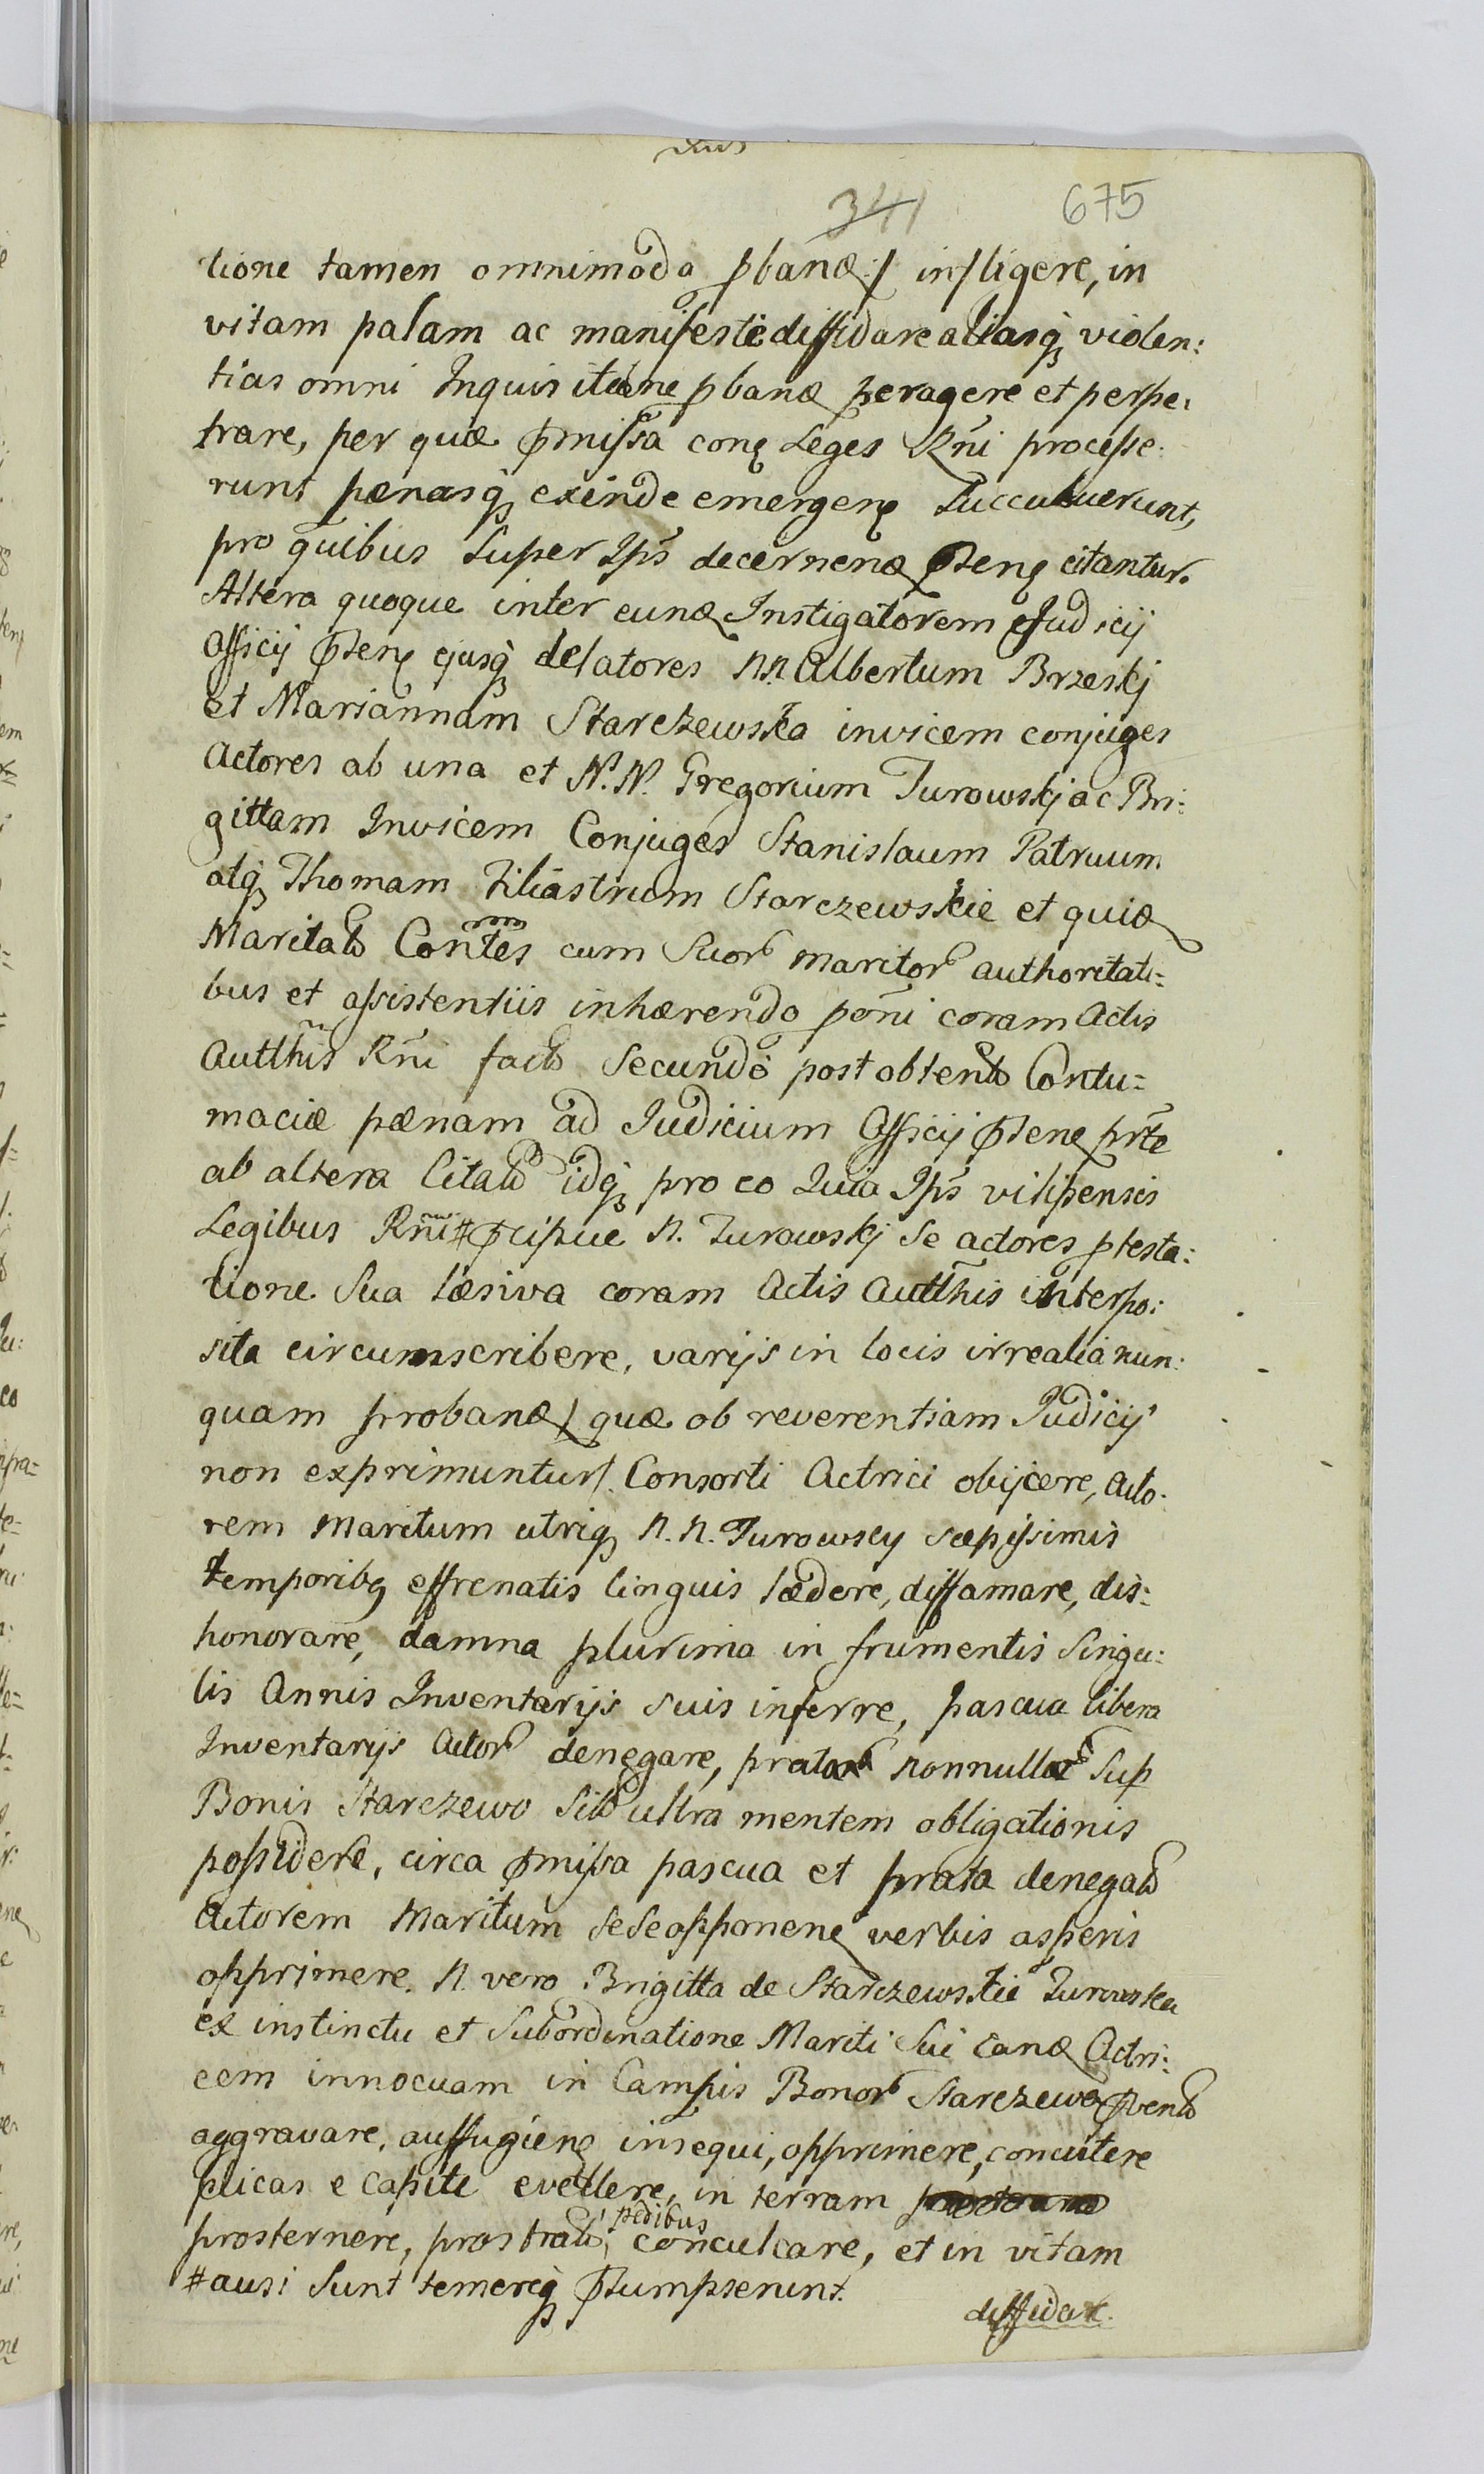 341 675
tione tamen omnimoda pbanꝺ:/ infligere, in
vitam palam ac manifestè diffidare aliasq̨ violen:
tias omni Inquisitione pbanꝺ peragere et perpe:
trare, per quæ p̃missa conꝭ Leges Rñi processe:
runt pænasq̨ exinde emergenꝭ succubuerunt,
pro quibus super Ips̃ decernenꝺ p̃senꝭ citantur.
Altera quoque inter eunꝺ Instigatorem Judicij
Officij p̃senꝭ ejusq̨ delatores N.N. Albertum Brzeskj
et Mariannam Starczewska invicem conjuges
Actores ab una et N. N. Gregorium Turowskj ac Bri:
gittam Invicem Conjuges Stanislaum Patruum
atq̨ Thomam Filiastrum Starczewskie et quiꝺ
Maritatꝭ Con̄tes cum suor̄ maritor̄ authoritati=
bus et assistentiis inhærendo pōni coram Actis
Autthis Rñi factꝭ secundò post obtentꝭ Contu=
maciæ pænam ad Judicium Officij p̃senꝭ pr̃te
ab altera Citatꝭ idq̨ pro eo Quia Ips̃ vilipensis
Legibus Rñi # p̃cipue N. Turowskj se actores ptesta:
tione sua læsiva coram Actis Autthis interpo:
sita circumscribere, varijs in locis irrealia nun:
quam probanꝺ/ quæ ob reverentiam Judicij
non exprimuntur/. Consorti Actrici objicere, acto:
rem Maritum utriq̨ N. N. Turowscy sæpissimis
temporibꝫ effrenatis linguis lædere, diffamare, dis:
honorare, damna plurima in frumentis singu:
lis Annis Inventarijs suis inferre, pascua libera
Inventarijs Actor̄ denegare, prator̄ nonnullor̄ sup
Bonis Starczewo sitꝭ ultra mentem obligationis
possidere, circa p̃missa pascua et prata denegatꝭ
Actorem Maritum sese opponenꝭ verbis asperis
opprimere. N. vero Brigitta de Starczewskie Turowska
ex instinctu et subordinatione Mariti sui eanꝺ Actri:
cem innocuam in Campis Bonor̄ Starczewo p̃ventꝭ
aggravare, auffugienꝭ insequi, opprimere, concutere
plicas e capite evellere, in terram
prosternere, prostratꝭ, pedibus conculcare, et in vitam
#ausi sunt temereq̨ p̃sumpserunt.
diffidar.